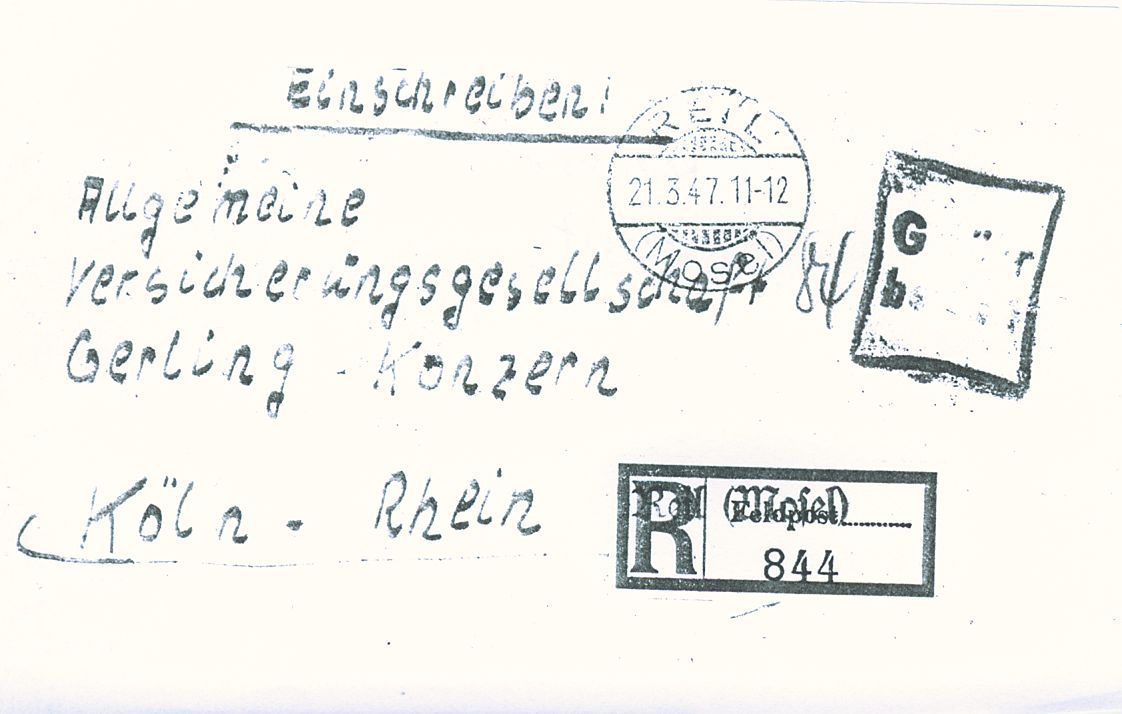 Einschreiben!
REIL
21.3.47.11-12
(Mosel)
Allgemeine
Versicherungsgesellschaft 84
Gerling - Konzern
Köln - Rhein
R
Reil (Mosel)
Feldpost
844